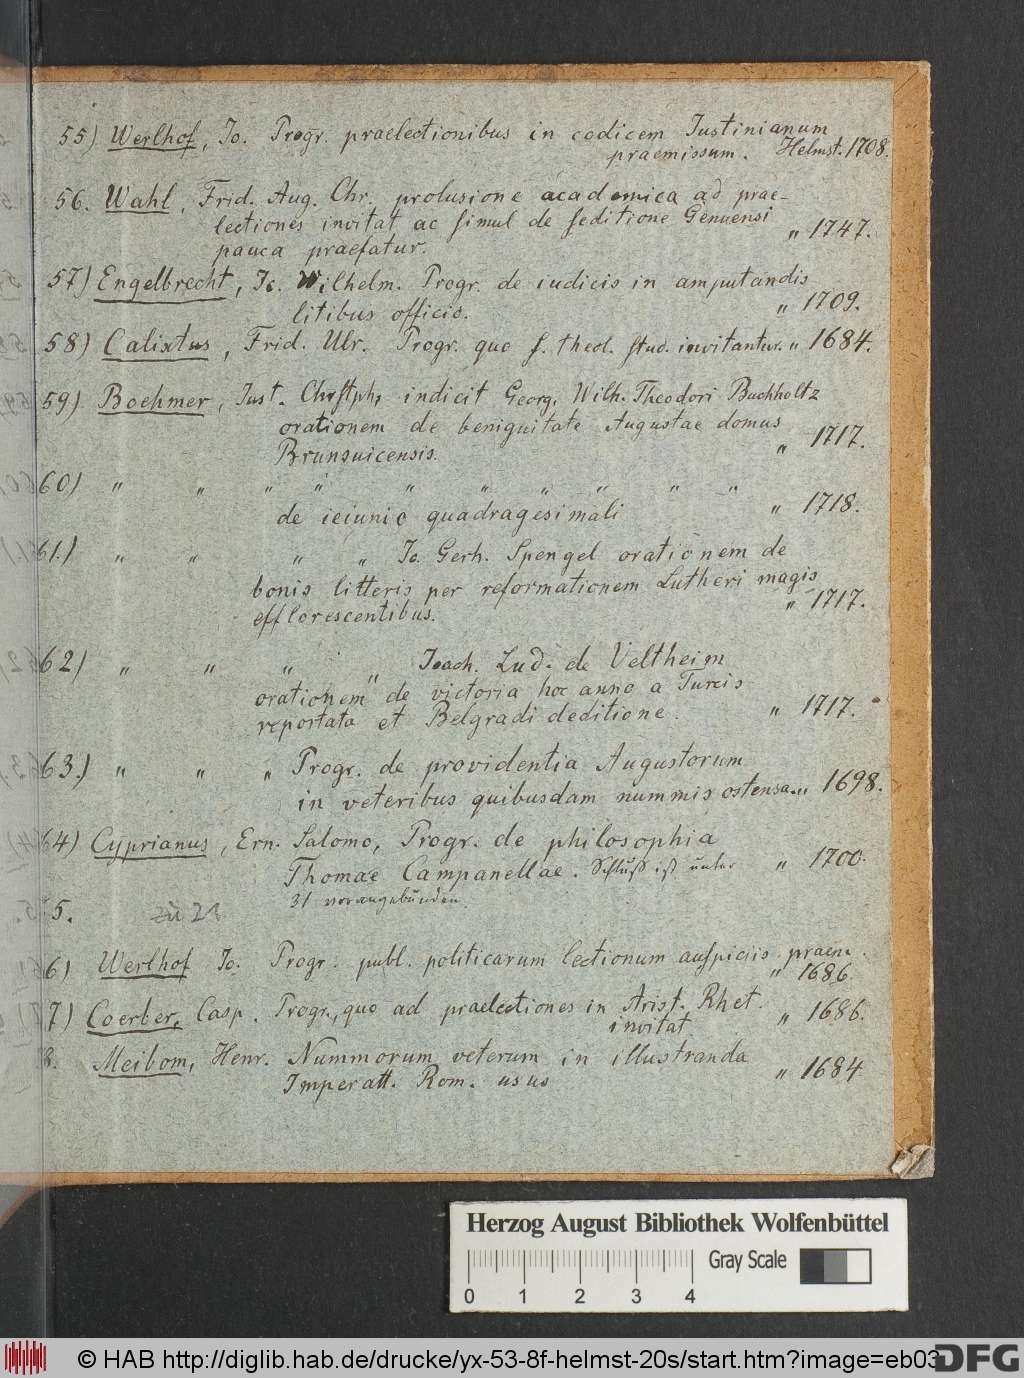 55) Werlhof, Jo. Progr. praelectionibus in codicem Iustinianum
praemissum. Helmst. 1708.
56. Wahl, Frid. Aug. Chr. prolusione academica ad prae-
lectiones invitat ac simul de seditione Genuensi
pauca praefatur. " 1747.
57) Engelbrecht, Jo. Wilhelm. Progr. de iudicis in amputandis
litibus officio. " 1709.
58) Calixtus, Frid. Ulr. Progr. quo s. theol. stud. invitantur. " 1684.
59) Boehmer, Just. Chrstph, indicit Georg. Wilh. Theodori Buchholtz
orationem de benignitate Augustae domus
Brunsuicensis. " 1717.
60) " " " " " " " " " "
de ieiunio quadragesimali " 1718.
61.) " " " " Jo. Gerh. Spengel orationem de
bonis litteris per reformationem Lutheri magis
efflorescentibus. " 1717.
62) " " " " Joach. Lud. de Veltheim
orationem de victoria hoc anno a Turcis
reportata et Belgradi deditione. " 1717.
63.) " " " Progr. de providentia Augustorum
in veteribus quibusdam nummis ostensa. " 1698.
64) Cyprianus, Ern. Salomo, Progr. de philosophia
Thomae Campanellae. Schluß ist unter " 1700.
31 vorangebunden.
5. zu 23
6) Werlhof Jo. Progr. publ. politicarum lectionum auspiciis praem.
" 1686.
7) Coerber, Casp. Progr., quo ad praelectiones in Arist. Rhet.
invitat " 1686.
8. Meibom, Henr. Nummorum veterum in illustranda
Imperatt. Rom. usus " 1684
Herzog August Bibliothek Wolfenbüttel
Gray Scale
0 1 2 3 4
© HAB http://diglib.hab.de/drucke/yx-53-8f-helmst-20s/start.htm?image=eb03
DFG